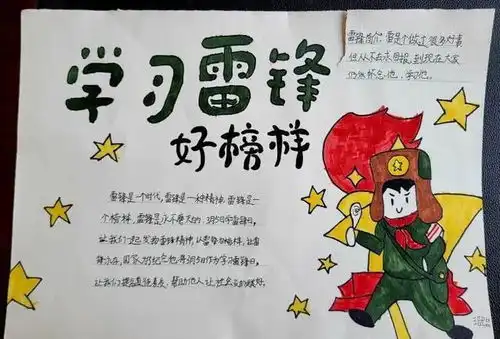 学习雷锋
好榜样
雷锋简介：雷是个做过很多好事
但从不去求回报，到现在大家
仍然怀念他，学习他。
雷锋是一个时代，雷锋是一种精神，雷锋是一
个榜样，雷锋是永不磨灭的，3月5日学雷锋日，
让我们一起发扬雷锋精神，以雷锋为榜样，让雷
锋永在，国家为纪念他将3月5日作为学习雷锋日。
让我们提高责任意，帮助他人，让社会变的更好。